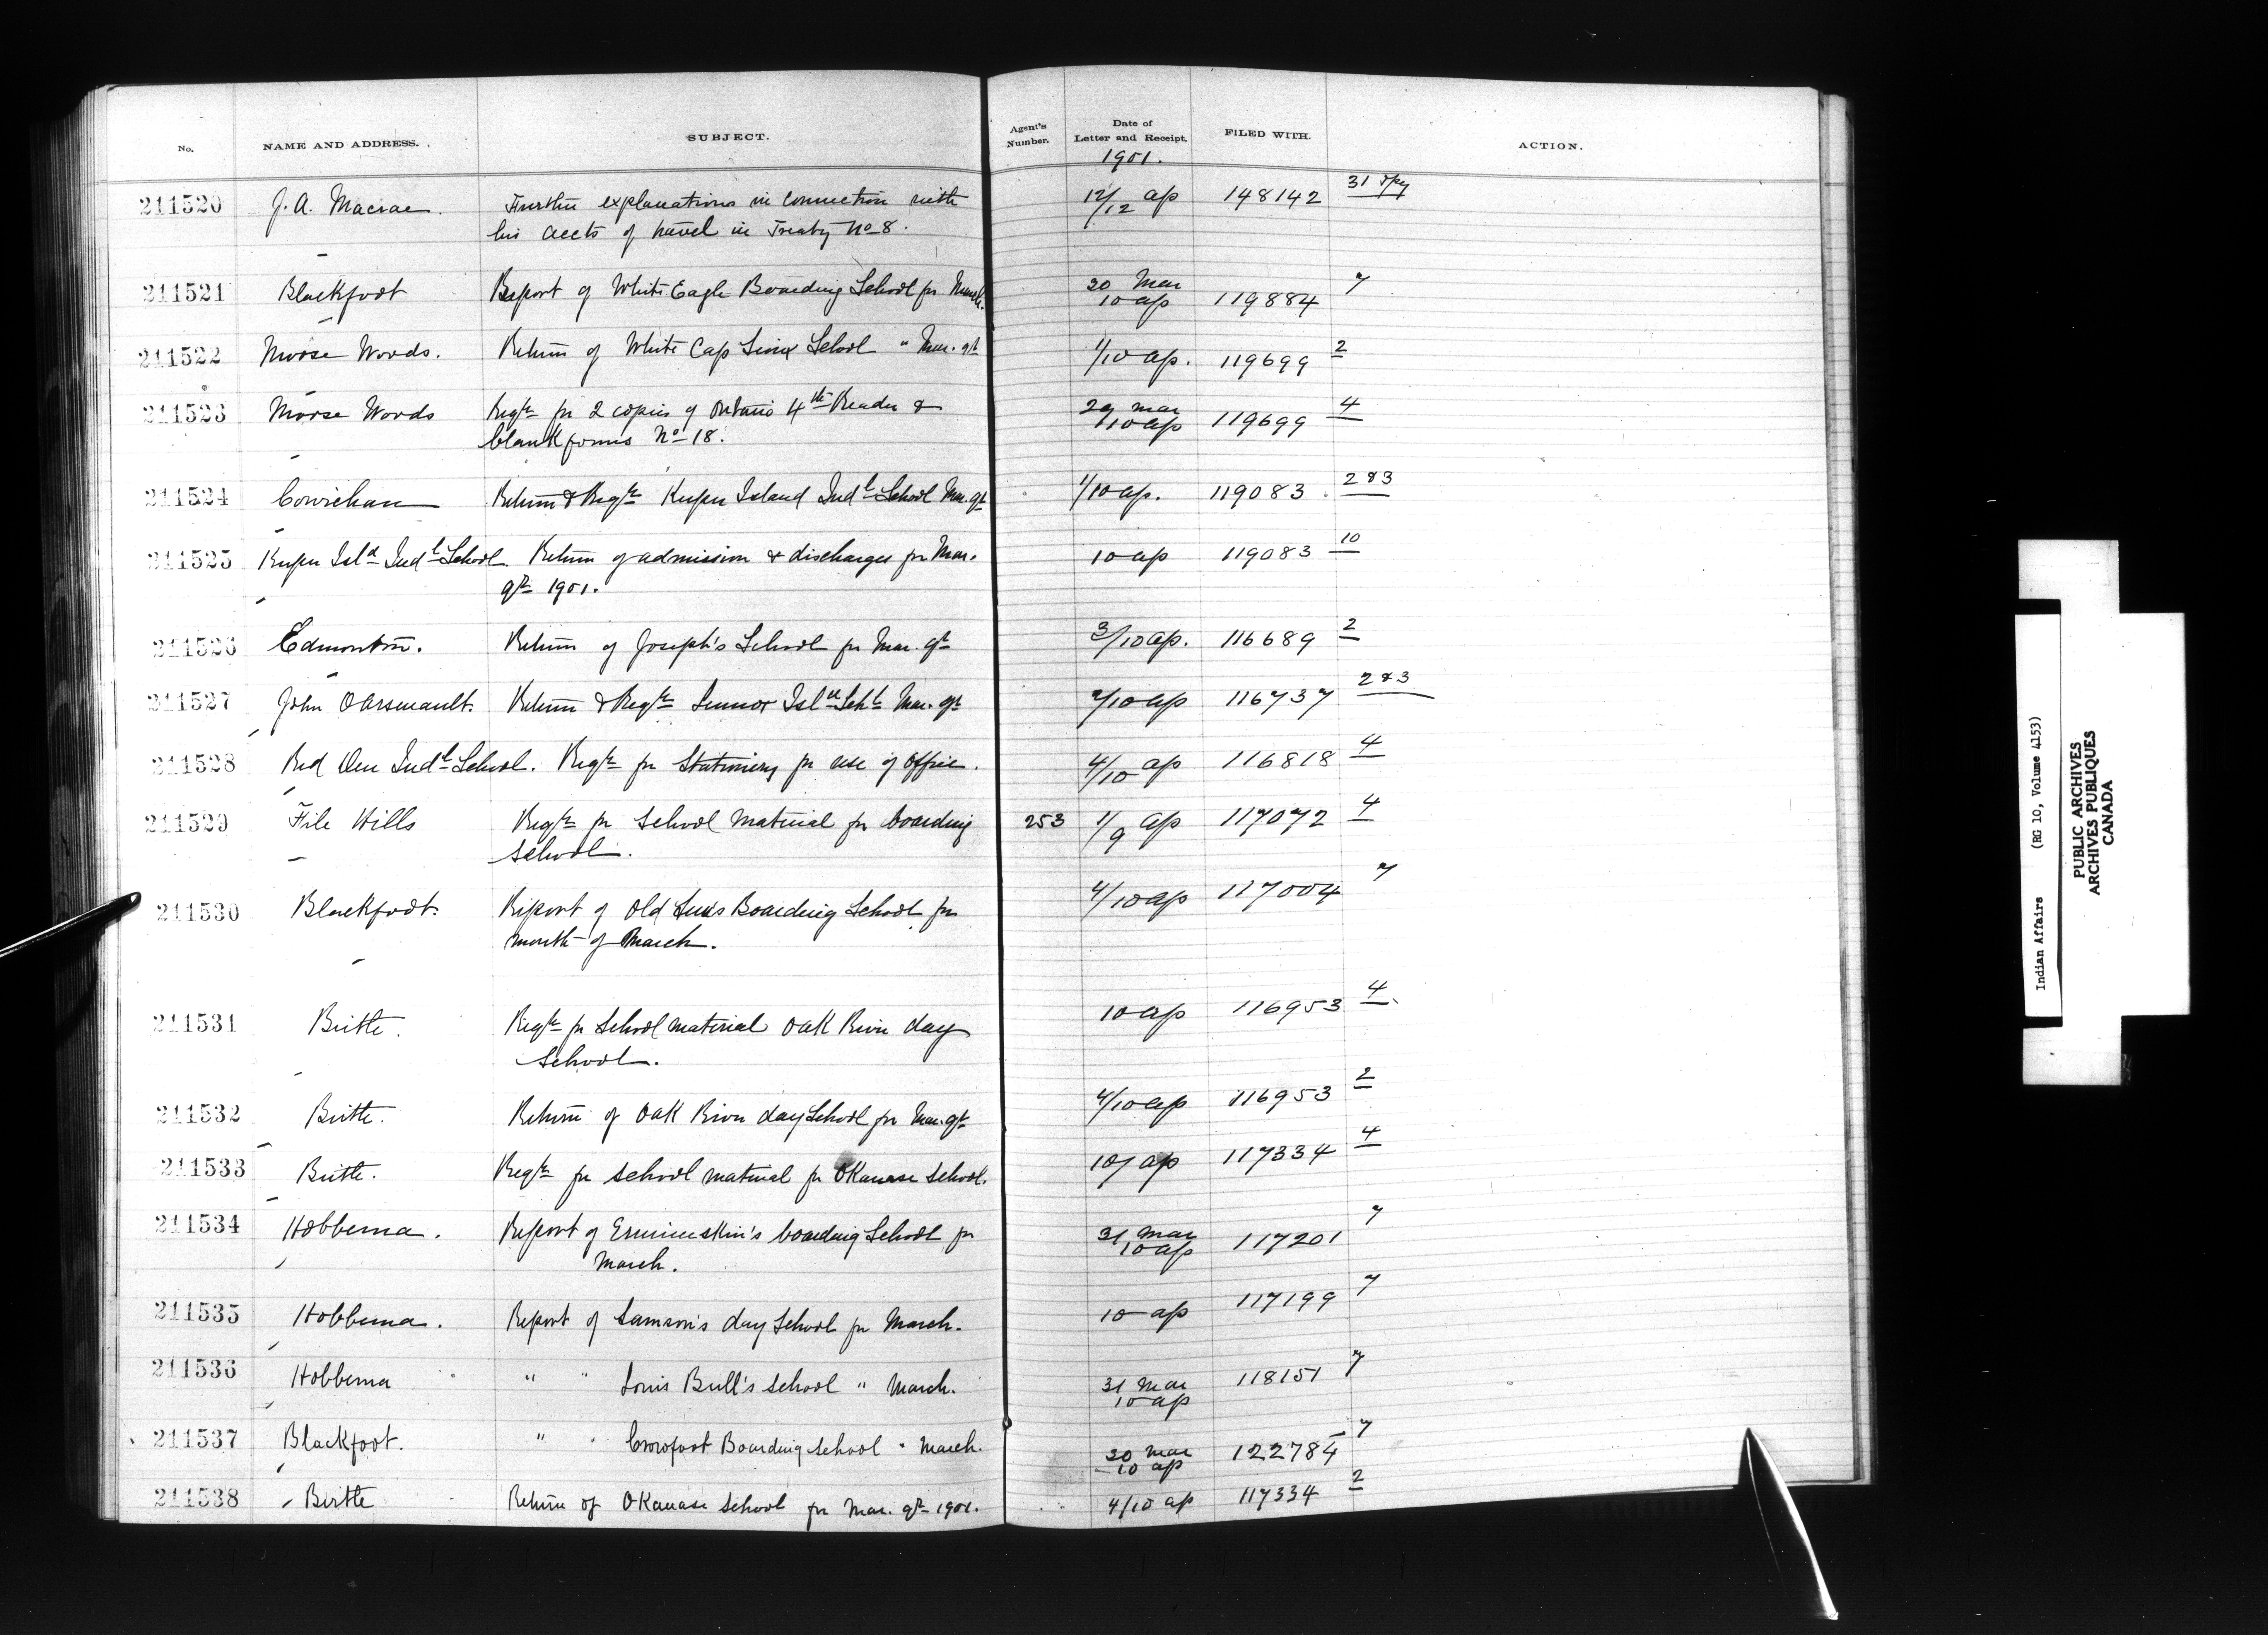 No. NAME AND ADDRESS. SUBJECT. Agent's Number. Date of Letter and Receipt. FILED WITH. ACTION.
1901.
211520 J. A. Macrae. Further explanations in connection with 12/12 ap 148142 31
his accts of travel in Treaty No 8.
211521 Blackfoot Report of White Eagle Boarding School for March. 30 Mar 10 ap 119884 7
211522 Moose Woods. Return of White Cap Sioux School " Mar. qr 1/10 ap. 119699 2
211523 Moose Woods Reqn for 2 copies of Ontario 4th Reader & 29 mar 10 ap 119699 4
blank forms No 18.
211524 Cowichan Return & Reqn Kuper Island Indl School Mar. qr 1/10 ap. 119083 2 & 3
211525 Kuper Isld Indl School Return of admission & discharges for Mar. 10 ap 119083 10
qr 1901.
211526 Edmonton. Return of Joseph's School for Mar. qr 3/10 ap. 116689 2
211527 John O Arseneault. Return & Reqn Lennox Isld Schl Mar. qr 2/10 ap 116737 2 & 3
211528 Red Deer Indl School. Reqn for Stationery for use of office. 4/10 ap 116818 4
211529 File Hills Reqn for School Material for boarding 253 1/9 ap 117072 4
School.
211530 Blackfoot. Report of Old Suns Boarding School for 4/10 ap 117004 7
month of March.
211531 Birtle. Reqn for School material Oak River day 10 ap 116953 4
School.
211532 Birtle. Return of Oak River day School for Mar. qr 4/10 ap 116953 2
211533 Birtle. Reqn for School material for Okanase School. 10 ap 117334 4
211534 Hobbema. Report of Ermineskin's boarding School for 31 Mar 10 ap 117201 7
March.
211535 Hobbema. Report of Samson's day School for March. 10 ap 117199 7
211536 Hobbema " " Louis Bull's School " March. 31 Mar 10 ap 118151 7
211537 Blackfoot. " " Crowfoot Boarding School " March. 30 mar 10 ap 122784 7
211538 Birtle Return of Okanase School for Mar. qr 1901. 4/10 ap 117334 2
Indian Affairs (RG 10, Volume 4153)
PUBLIC ARCHIVES
ARCHIVES PUBLIQUES
CANADA